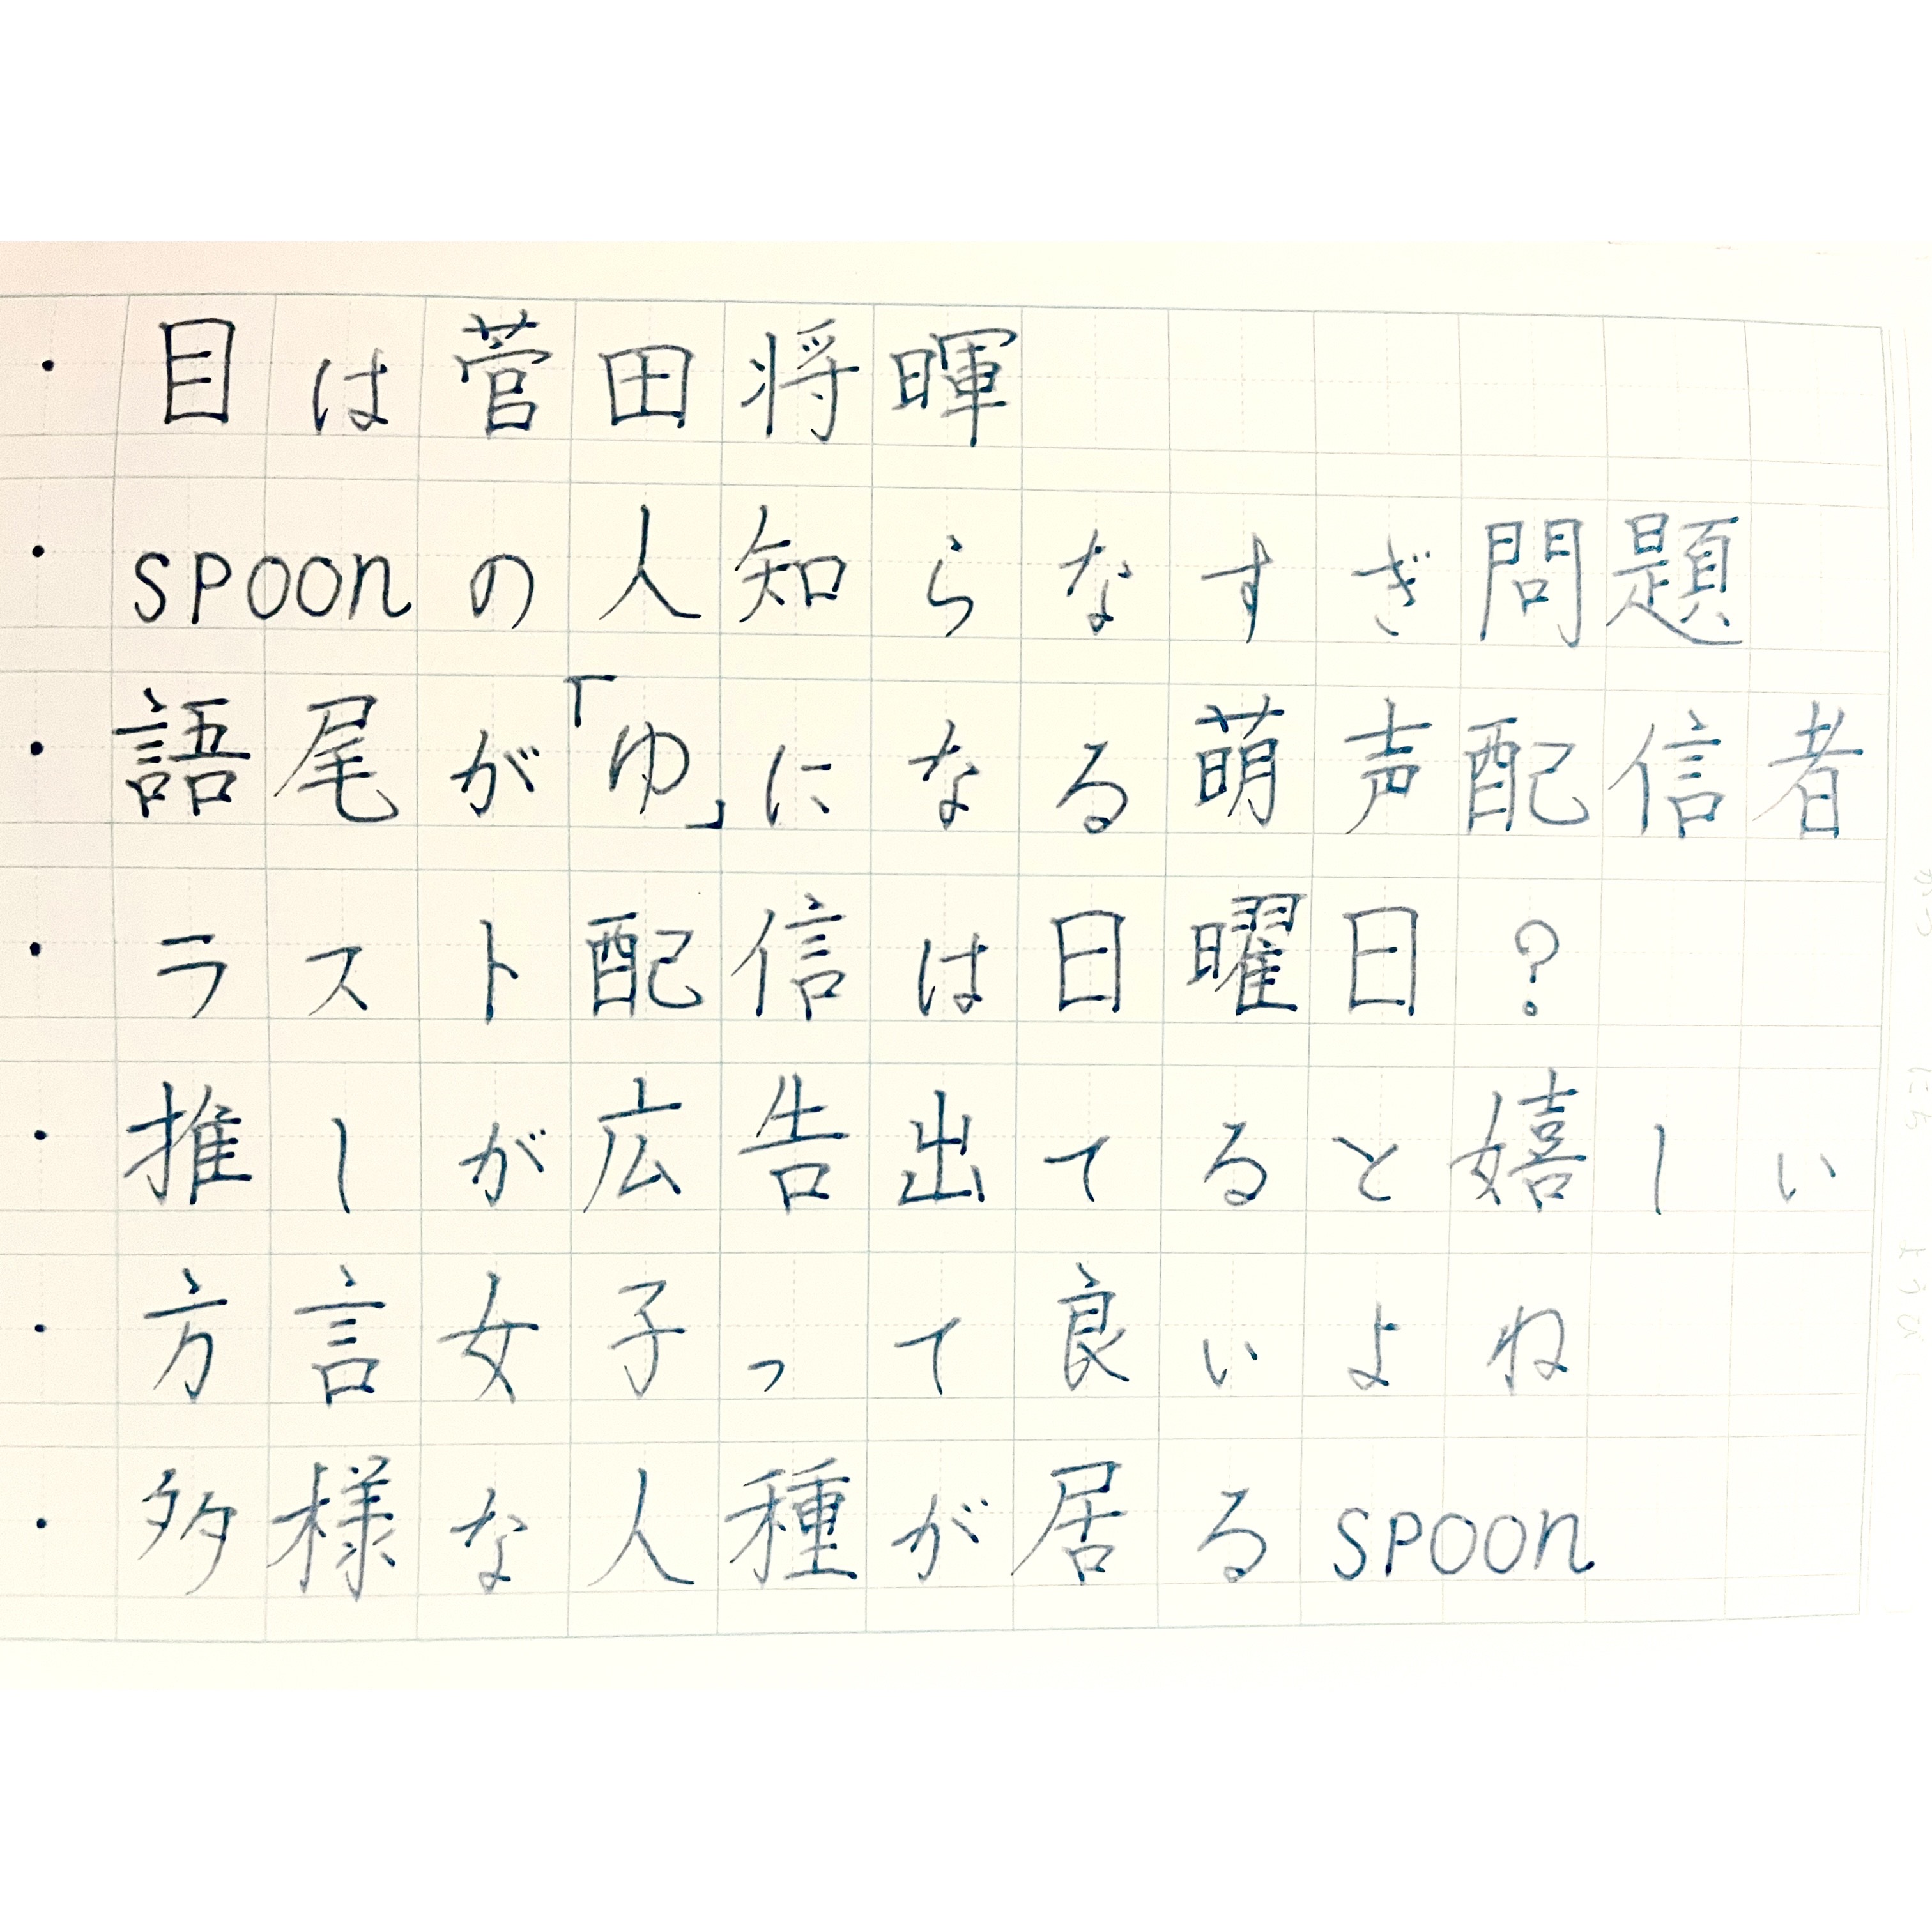 ・目は菅田将暉
・spoonの人知らなすぎ問題
・語尾が「ゆ」になる萌声配信者
・ラスト配信は日曜日？
・推しが広告出てると嬉しい
・方言女子って良いよね
・多様な人種が居るspoon